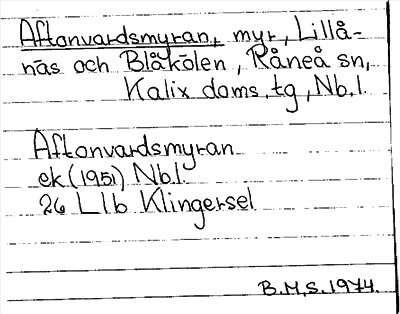 Aftonvardsmyran, myr, Lillå-
näs och Blåkölen, Råneå sn,
Kalix doms.tg, Nb.l.
Aftonvardsmyran
ek (1951) Nb.l.
26 Llb Klingersel
B.M.S. 1974.